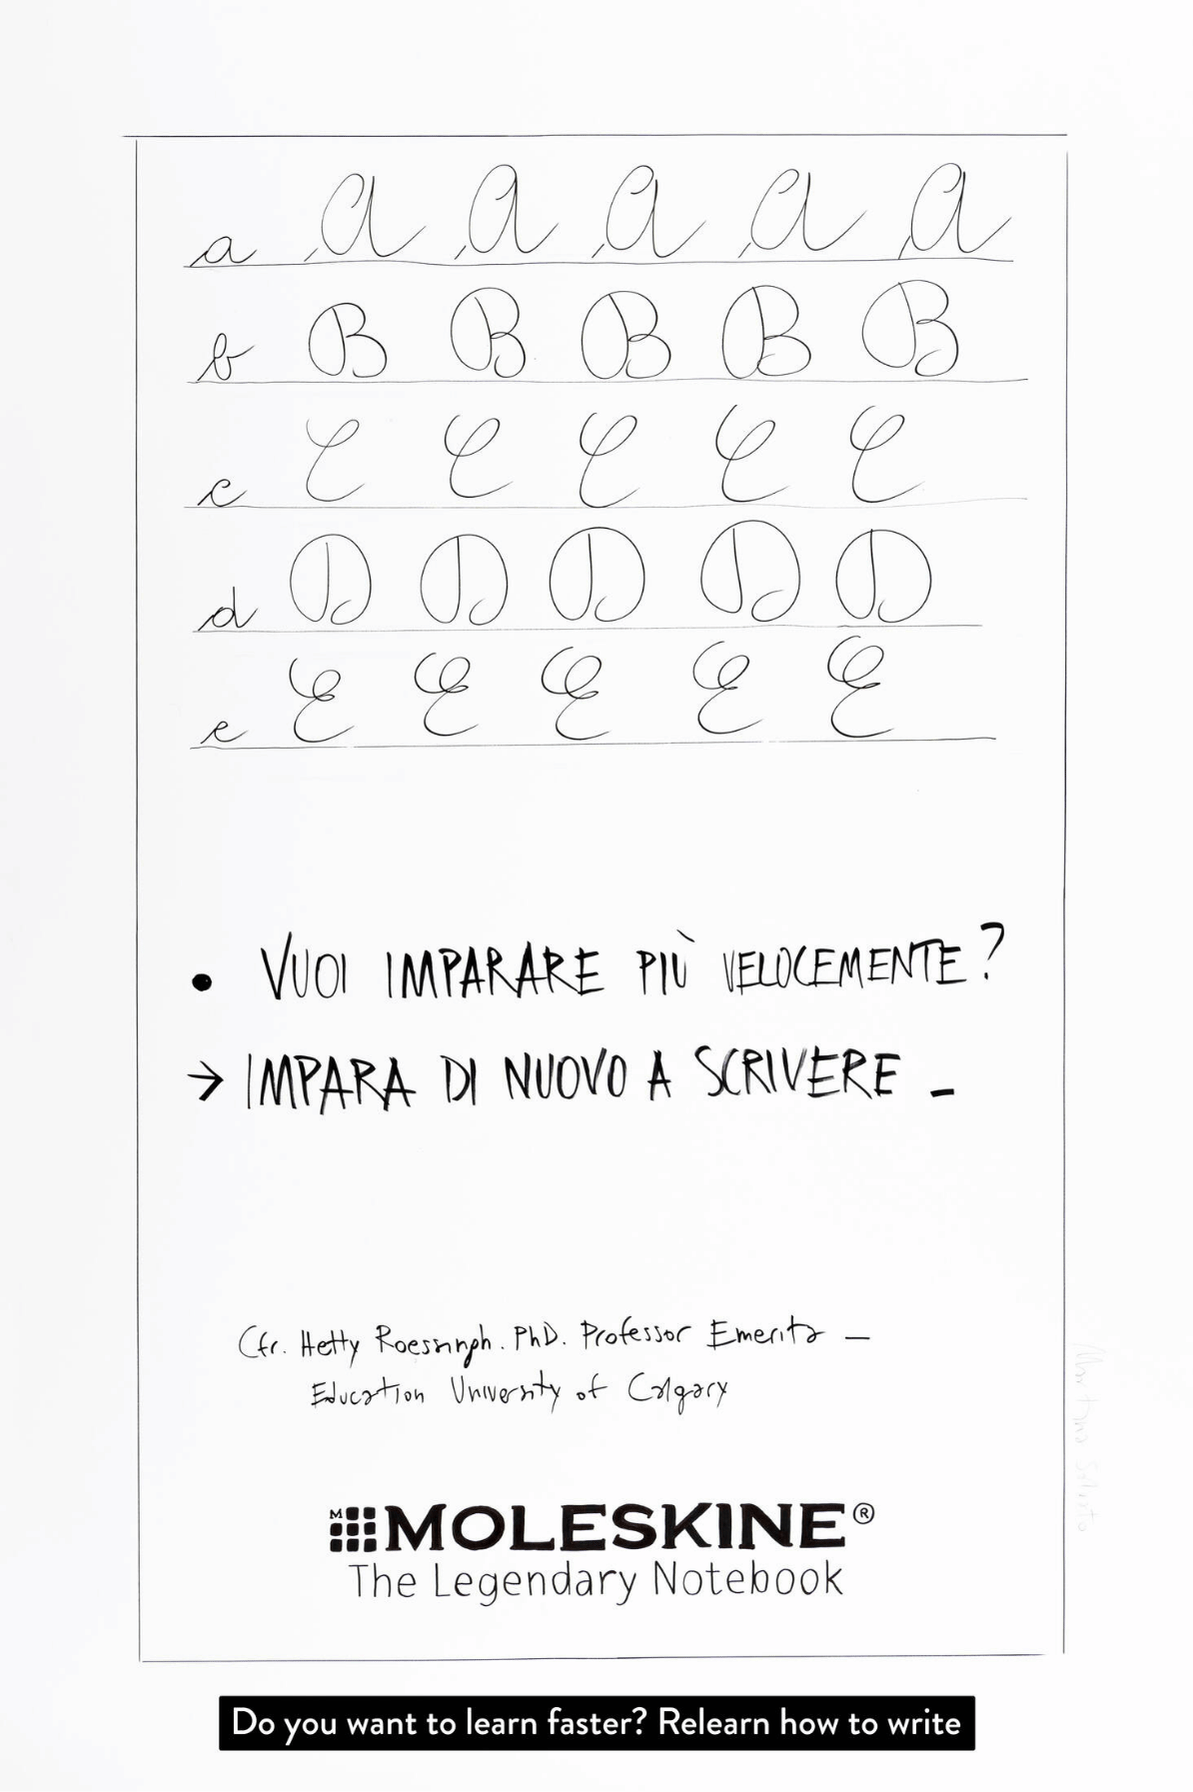 a A A A A A
b B B B B B
c C C C C C
d D D D D D
e E E E E E
• VUOI IMPARARE PIÙ VELOCEMENTE?
→ IMPARA DI NUOVO A SCRIVERE _
Cfr. Hetty Roessingh. PhD. Professor Emerita —
Education University of Calgary
M MOLESKINE®
The Legendary Notebook
Do you want to learn faster? Relearn how to write